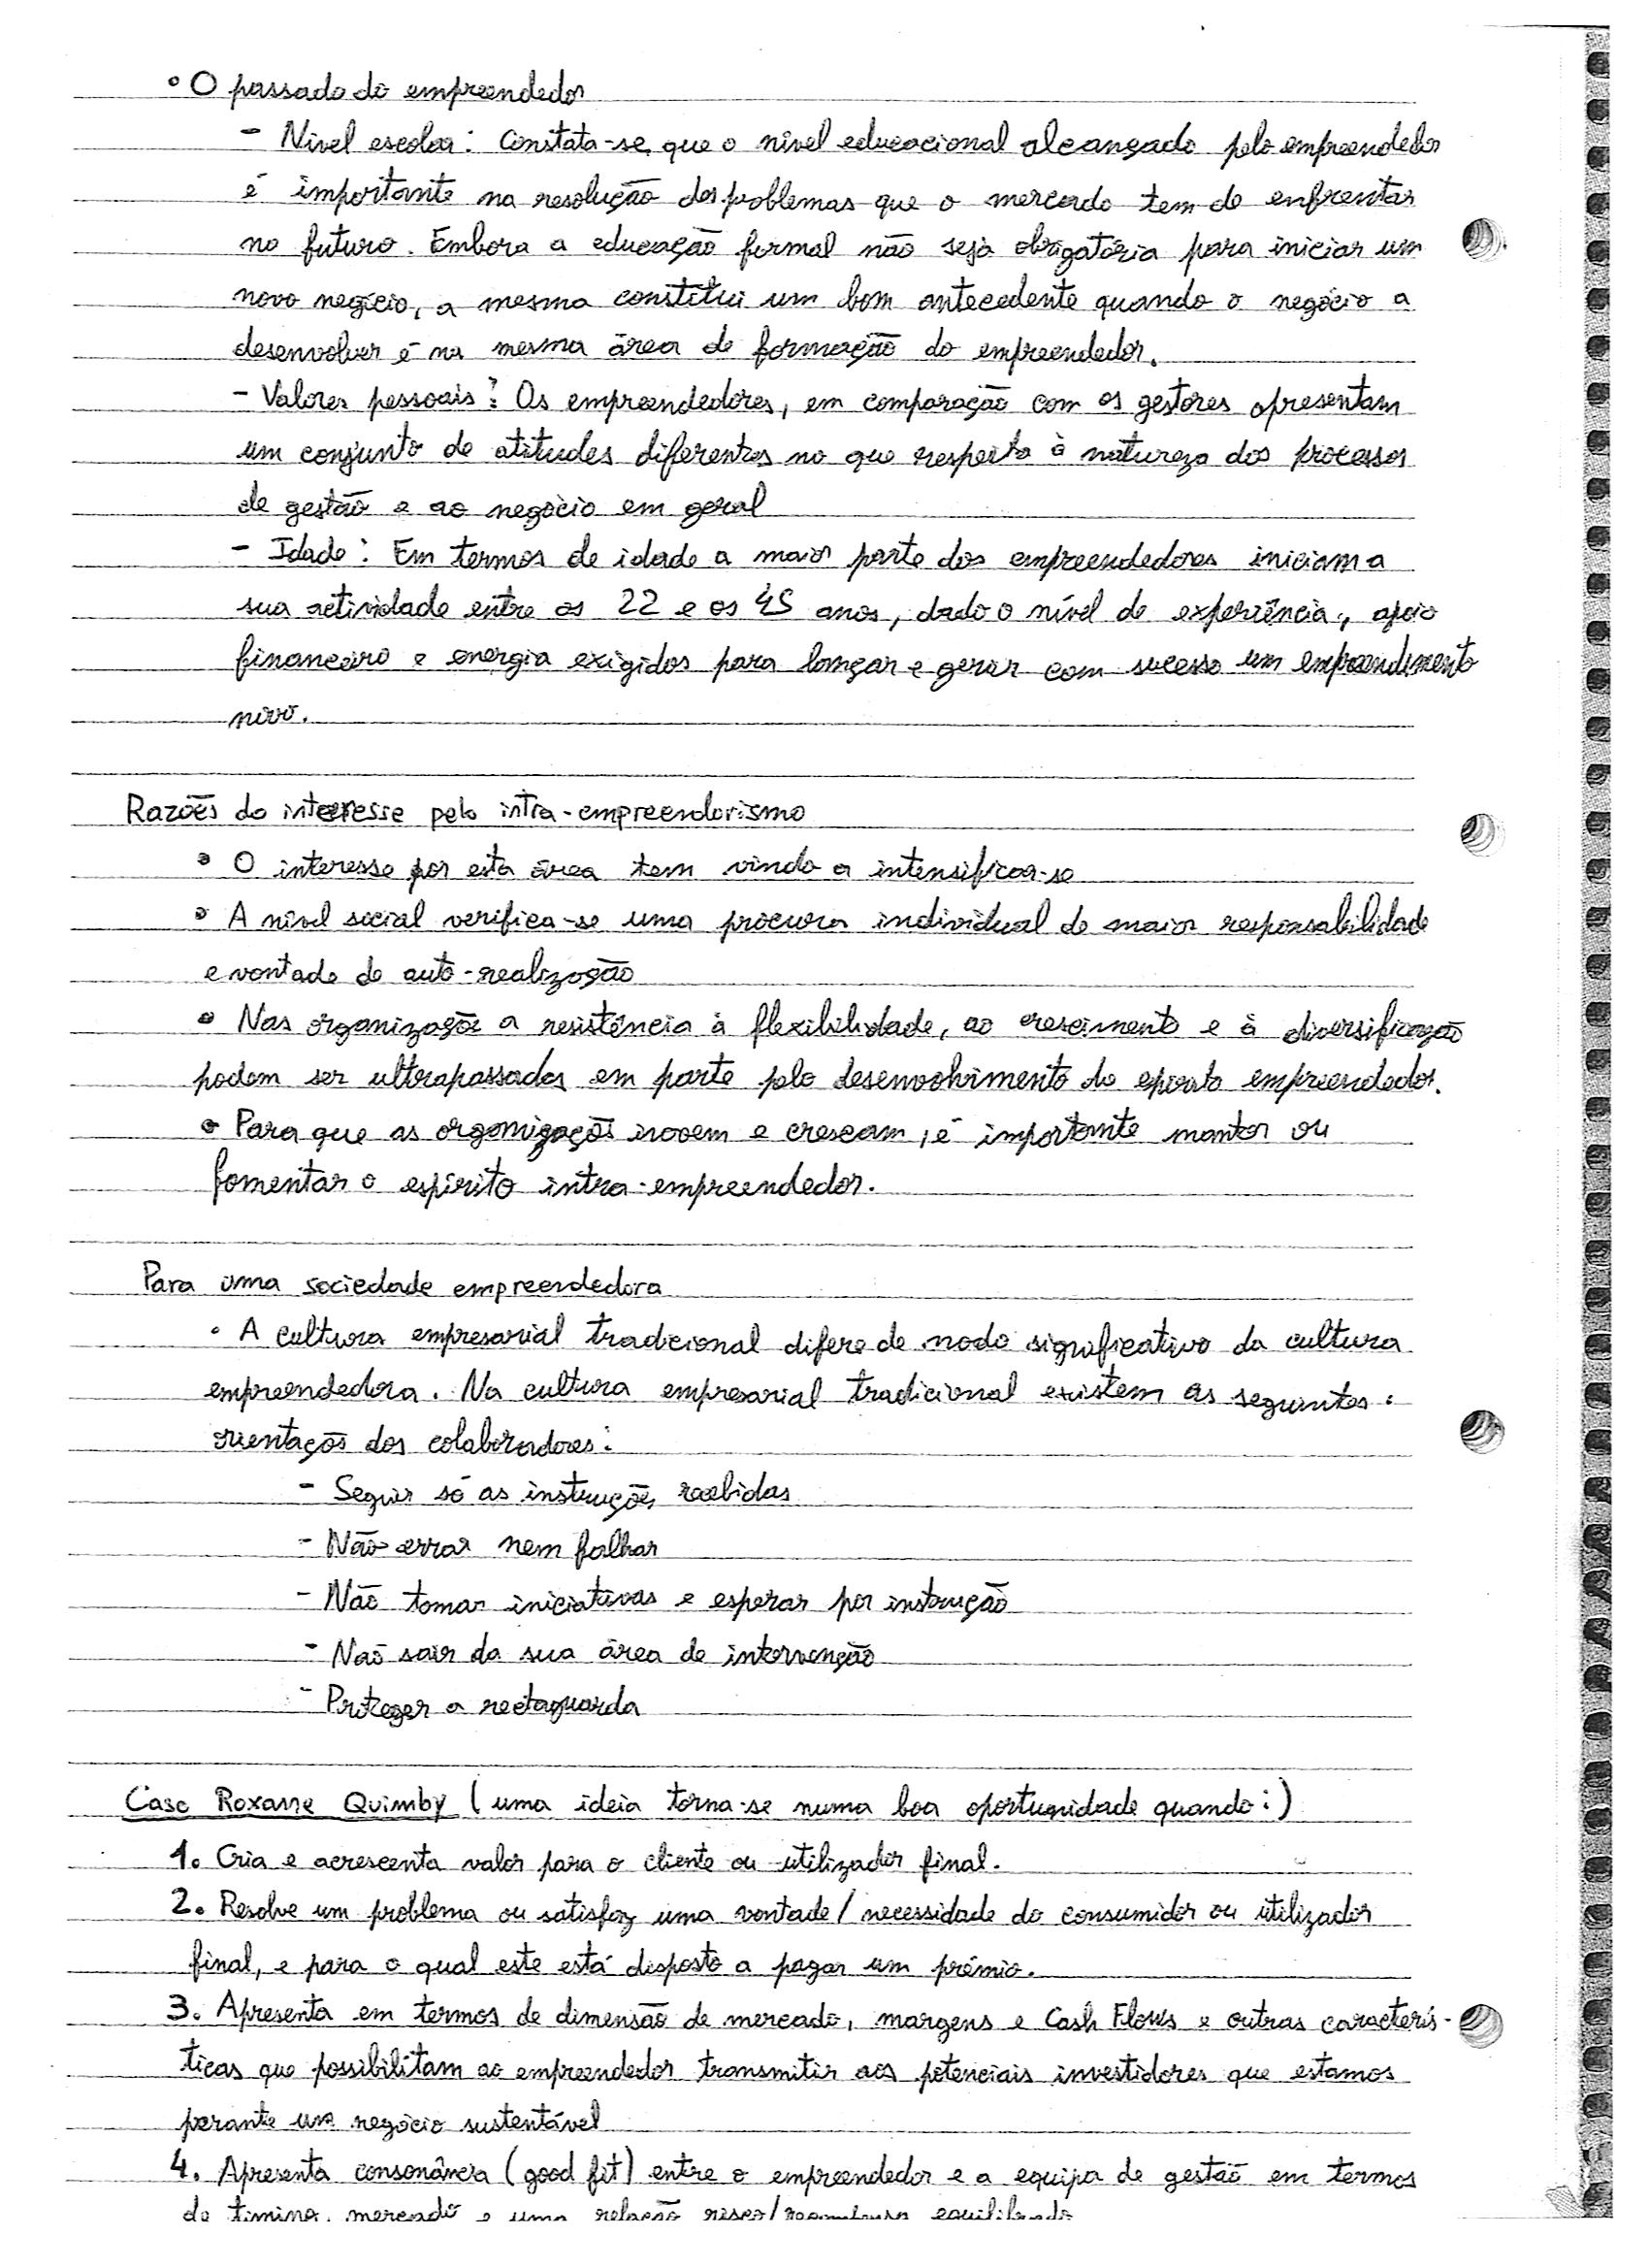 • O passado do empreendedor
- Nível escolar: Constata-se que o nível educacional alcançado pelo empreendedor
é importante na resolução dos problemas que o mercado tem de enfrentar
no futuro. Embora a educação formal não seja obrigatória para iniciar um
novo negócio, a mesma constitui um bom antecedente quando o negócio a
desenvolver é na mesma área de formação do empreendedor.
- Valores pessoais: Os empreendedores, em comparação com os gestores apresentam
um conjunto de atitudes diferentes no que respeita à natureza dos processos
de gestão e ao negócio em geral
- Idade: Em termos de idade a maior parte dos empreendedores iniciam a
sua actividade entre os 22 e os 45 anos, dado o nível de experiência, apoio
financeiro e energia exigidos para lançar e gerar com sucesso um empreendimento
novo.
Razões do interesse pelo intra-empreendorismo
• O interesse por esta área tem vindo a intensificar-se
• A nível social verifica-se uma procura individual de maior responsabilidade
e vontade de auto-realização
• Nas organizaçõe a resistência à flexibilidade, ao crescimento e à diversificação
podem ser ultrapassadas em parte pelo desenvolvimento do espirito empreendedor.
• Para que as organizaçõs inovem e cresçam, é importante manter ou
fomentar o espírito intra-empreendedor.
Para uma sociedade empreendedora
• A cultura empresarial tradicional difere de modo significativo da cultura
empreendedora. Na cultura empresarial tradicional existem as seguintes
orientaçõs dos colaboradores:
- Seguir só as instruções recebidas
- Não errar nem falhar
- Não tomar iniciativas e esperar por instrução
- Não sair da sua área de intervenção
- Proteger a rectaguarda
Caso Roxane Quimby (uma ideia torna-se numa boa oportunidade quando:)
1. Cria e acrescenta valor para o cliente ou utilizador final.
2. Resolve um problema ou satisfaz uma vontade/necessidade do consumidor ou utilizador
final, e para o qual este está disposto a pagar um prémio.
3. Apresenta em termos de dimensão de mercado, margens e Cash Flows e outras caracterís-
ticas que possibilitam ao empreendedor transmitir aos potenciais investidores que estamos
perante um negócio sustentável
4. Apresenta consonância (good fit) entre o empreendedor e a equipa de gestão em termos
de timing, mercado e uma relação risco/recompensa equilibrada